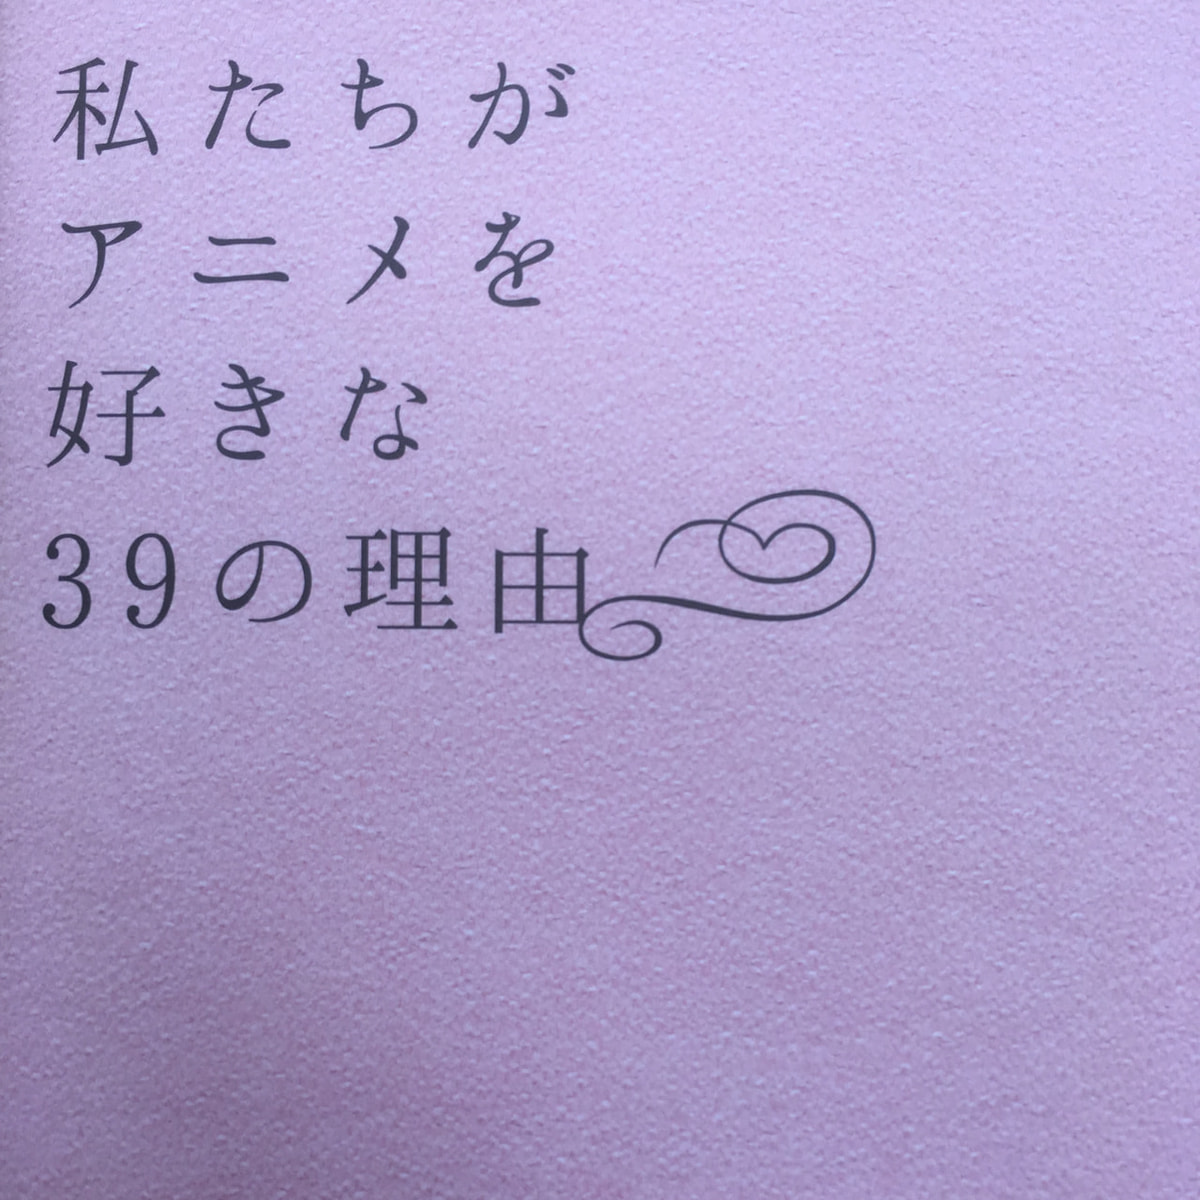 私たちが
アニメを
好きな
39の理由